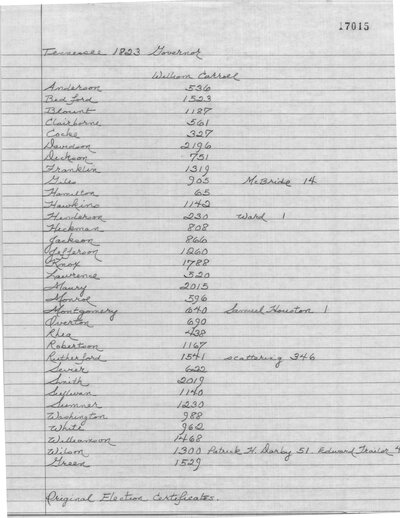 17015
Tennessee 1823 Governor
William Carroll
Anderson 536
Bedford 1523
Blount 1187
Clairborne 561
Cocke 327
Davidson 2196
Dickson 751
Franklin 1319
Giles 905 McBride 14
Hamilton 65
Hawkins 1142
Henderson 230 Ward 1
Hickman 808
Jackson 866
Jefferson 1260
Knox 1788
Lawrence 520
Maury 2015
Monroe 596
Montgomery 640 Samuel Houston 1
Overton 690
Rhea 438
Robertson 1167
Rutherford 1541 scattering 346
Sevier 622
Smith 2019
Sullivan 1140
Sumner 1230
Washington 988
White 962
Williamson 1468
Wilson 1300 Patrick H. Darby 51. Edward Trailor 4
Green 1529
Original Election Certificates.